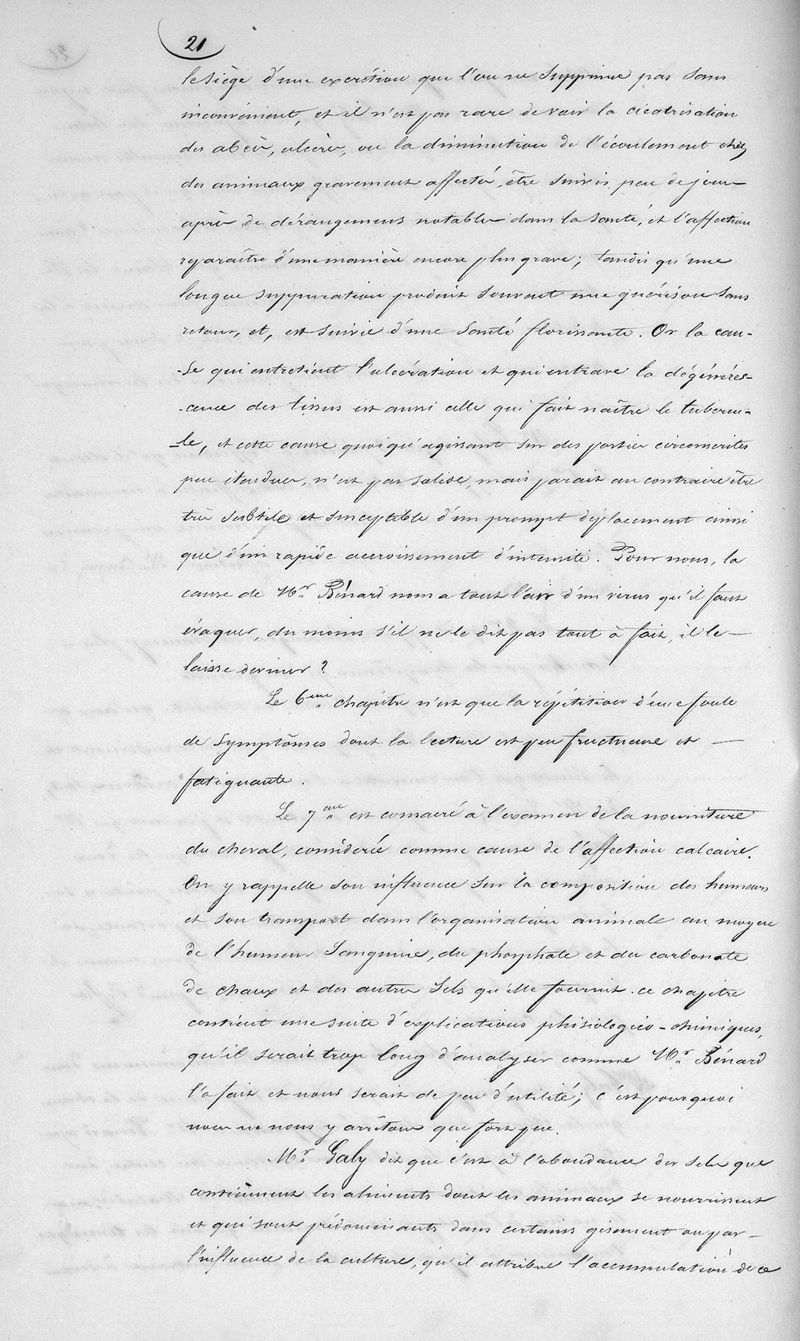 21
le siège d'une excrétion que l'on ne supprime pas sans
inconvénient, et il n'est pas rare de voir la cicatrisation
des abcès, ulcères, ou la diminution de l'écoulement chez
des animaux gravement affectés, être suivis peu de jours
après de dérangemens notables dans la santé, et l'affection
reparaître d'une manière encore plus grave; tandis qu'une
longue suppuration produit souvent une guérison sans
retour, et, est suivie d'une santé florissante. Or la cau-
-se qui entretient l'ulcération et qui entrave la dégénéres-
-cence des tissus est aussi celle qui fait naître le tubercu-
-le, et cette cause quoiqu'agissant sur des parties circonscrites
peu étendues, n'est pas solide, mais parait au contraire être
très subtile et susceptible d'un prompt déplacement ainsi
que d'un rapide accroissement d'intensité. Pour nous, la
cause de Mr. Bénard nous a tout l'air d'un virus qu'il faut
évaquer, du moins s'il ne le dit pas tout à fait, il le —
laisse deviner?
Le 6eme chapitre n'est que la répétition d'une foule
de symptômes dont la lecture est peu fructueuse et —
fatiguante.
Le 7eme est consacré à l'examen de la nourriture
du cheval, considerée comme cause de l'affection calcaire.
On y rappelle son influence sur la composition des humeurs
et son transport dans l'organisation animale au moyen
de l'humeur sanguine, du phosphate et du carbonate
de chaux et des autres sels qu'elle fournit. ce chapitre
contient une suite d'explications phisiologico-chimiques,
qu'il serait trop long d'analyser comme Mr. Bénard
l'a fait et nous serait de peu d'utilité; c'est pourquoi
nous ne nous y arrêtons que fort peu.
Mr. Galy dit que c'est à l'abondance des sels que
contiennent les aliments dont les animaux se nourrissent
et qui sont prédominants dans certains gisement ou par —
l'influence de la culture, qu'il attribue l'accumulation de ce